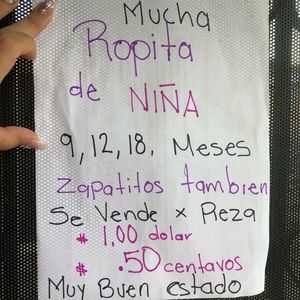 Mucha
Ropita
de NIÑA
9, 12, 18. Meses
Zapatitos tambien
Se Vende x Pieza
$ 1,00 dolar
$ .50 centavos
Muy Buen estado